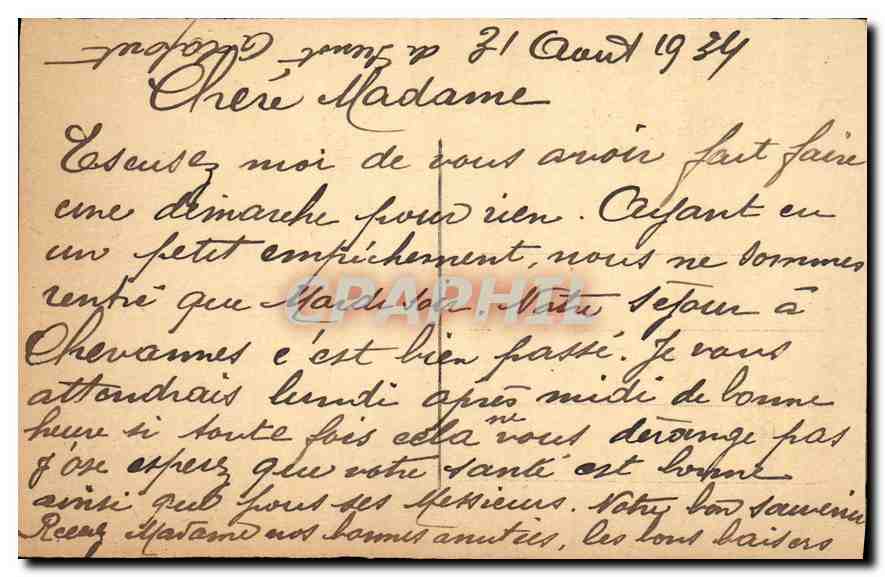 31 Août 1934
Chéré Madame
Escusez moi de vous avoir fait faire
une démarche pour rien. Ayant eu
un petit empéchement, nous ne sommes
rentré que Mardi soir. Notre séjour à
Chevannes c'est bien passé. Je vous
attendrais lundi après midi de bonne
heure si toute fois cela ne vous dérange pas
J'ose esperez que votre santé est bonne
ainsi que pour ses Messieurs. Notre bon souvenir
Recevez Madame nos bonnes amitiés, les bons baisers
de
CPAPHIL